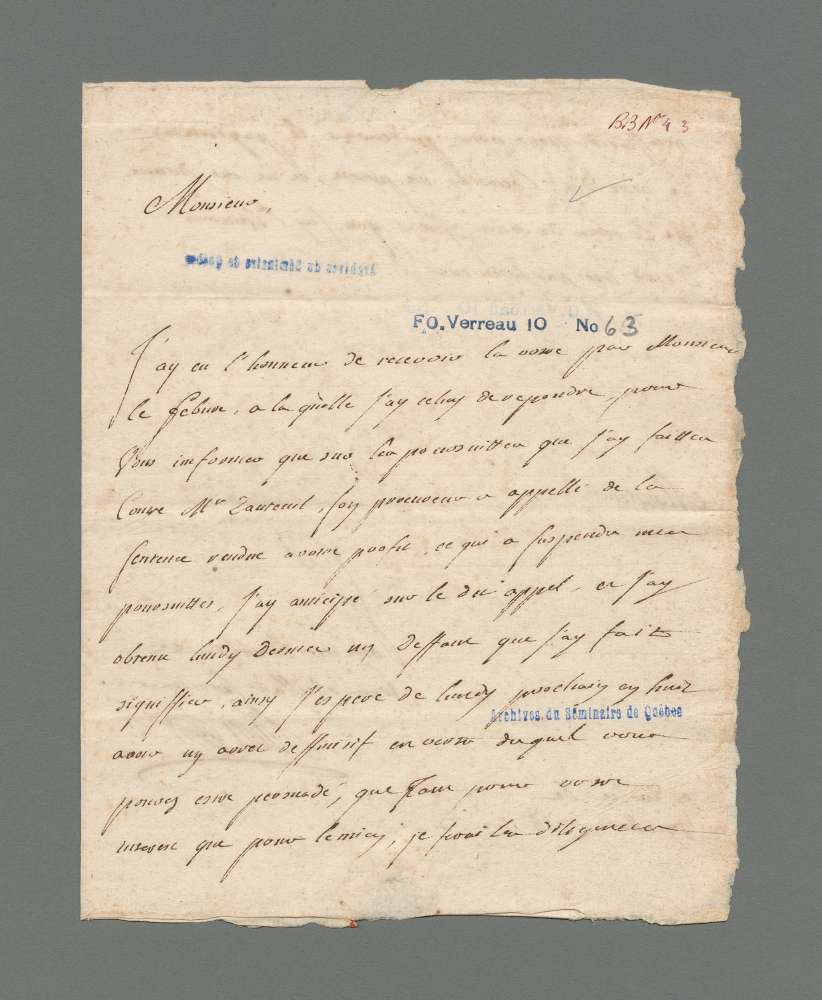 BB No 43
Monsieur,
Archives du Séminaire de Québec
FO. Verreau 10 No 63
J'ay eu l'honneur de recevoir la votre par Monsieur
le febure, a laquelle j'ay de repondre, pour
Vous informer que sur les poursuittes que j'ay faittes
Contre Mr , son procureur a appellé de la
sentence rendue a votre profit, ce qui a suspendu mes
poursuittes, j'ay anticipé sur le dit appel, et j'ay
obtenu lundy dernier un deffaut que j'ay fait
signiffier, ainsy j'espere de lundy prochain en huit
avoir un arret deffinitif en vertu duquel vous
pouvez etre persuadé, que tant pour votre
interest que pour le mien, je feray les diligences
Archives du Séminaire de Québec